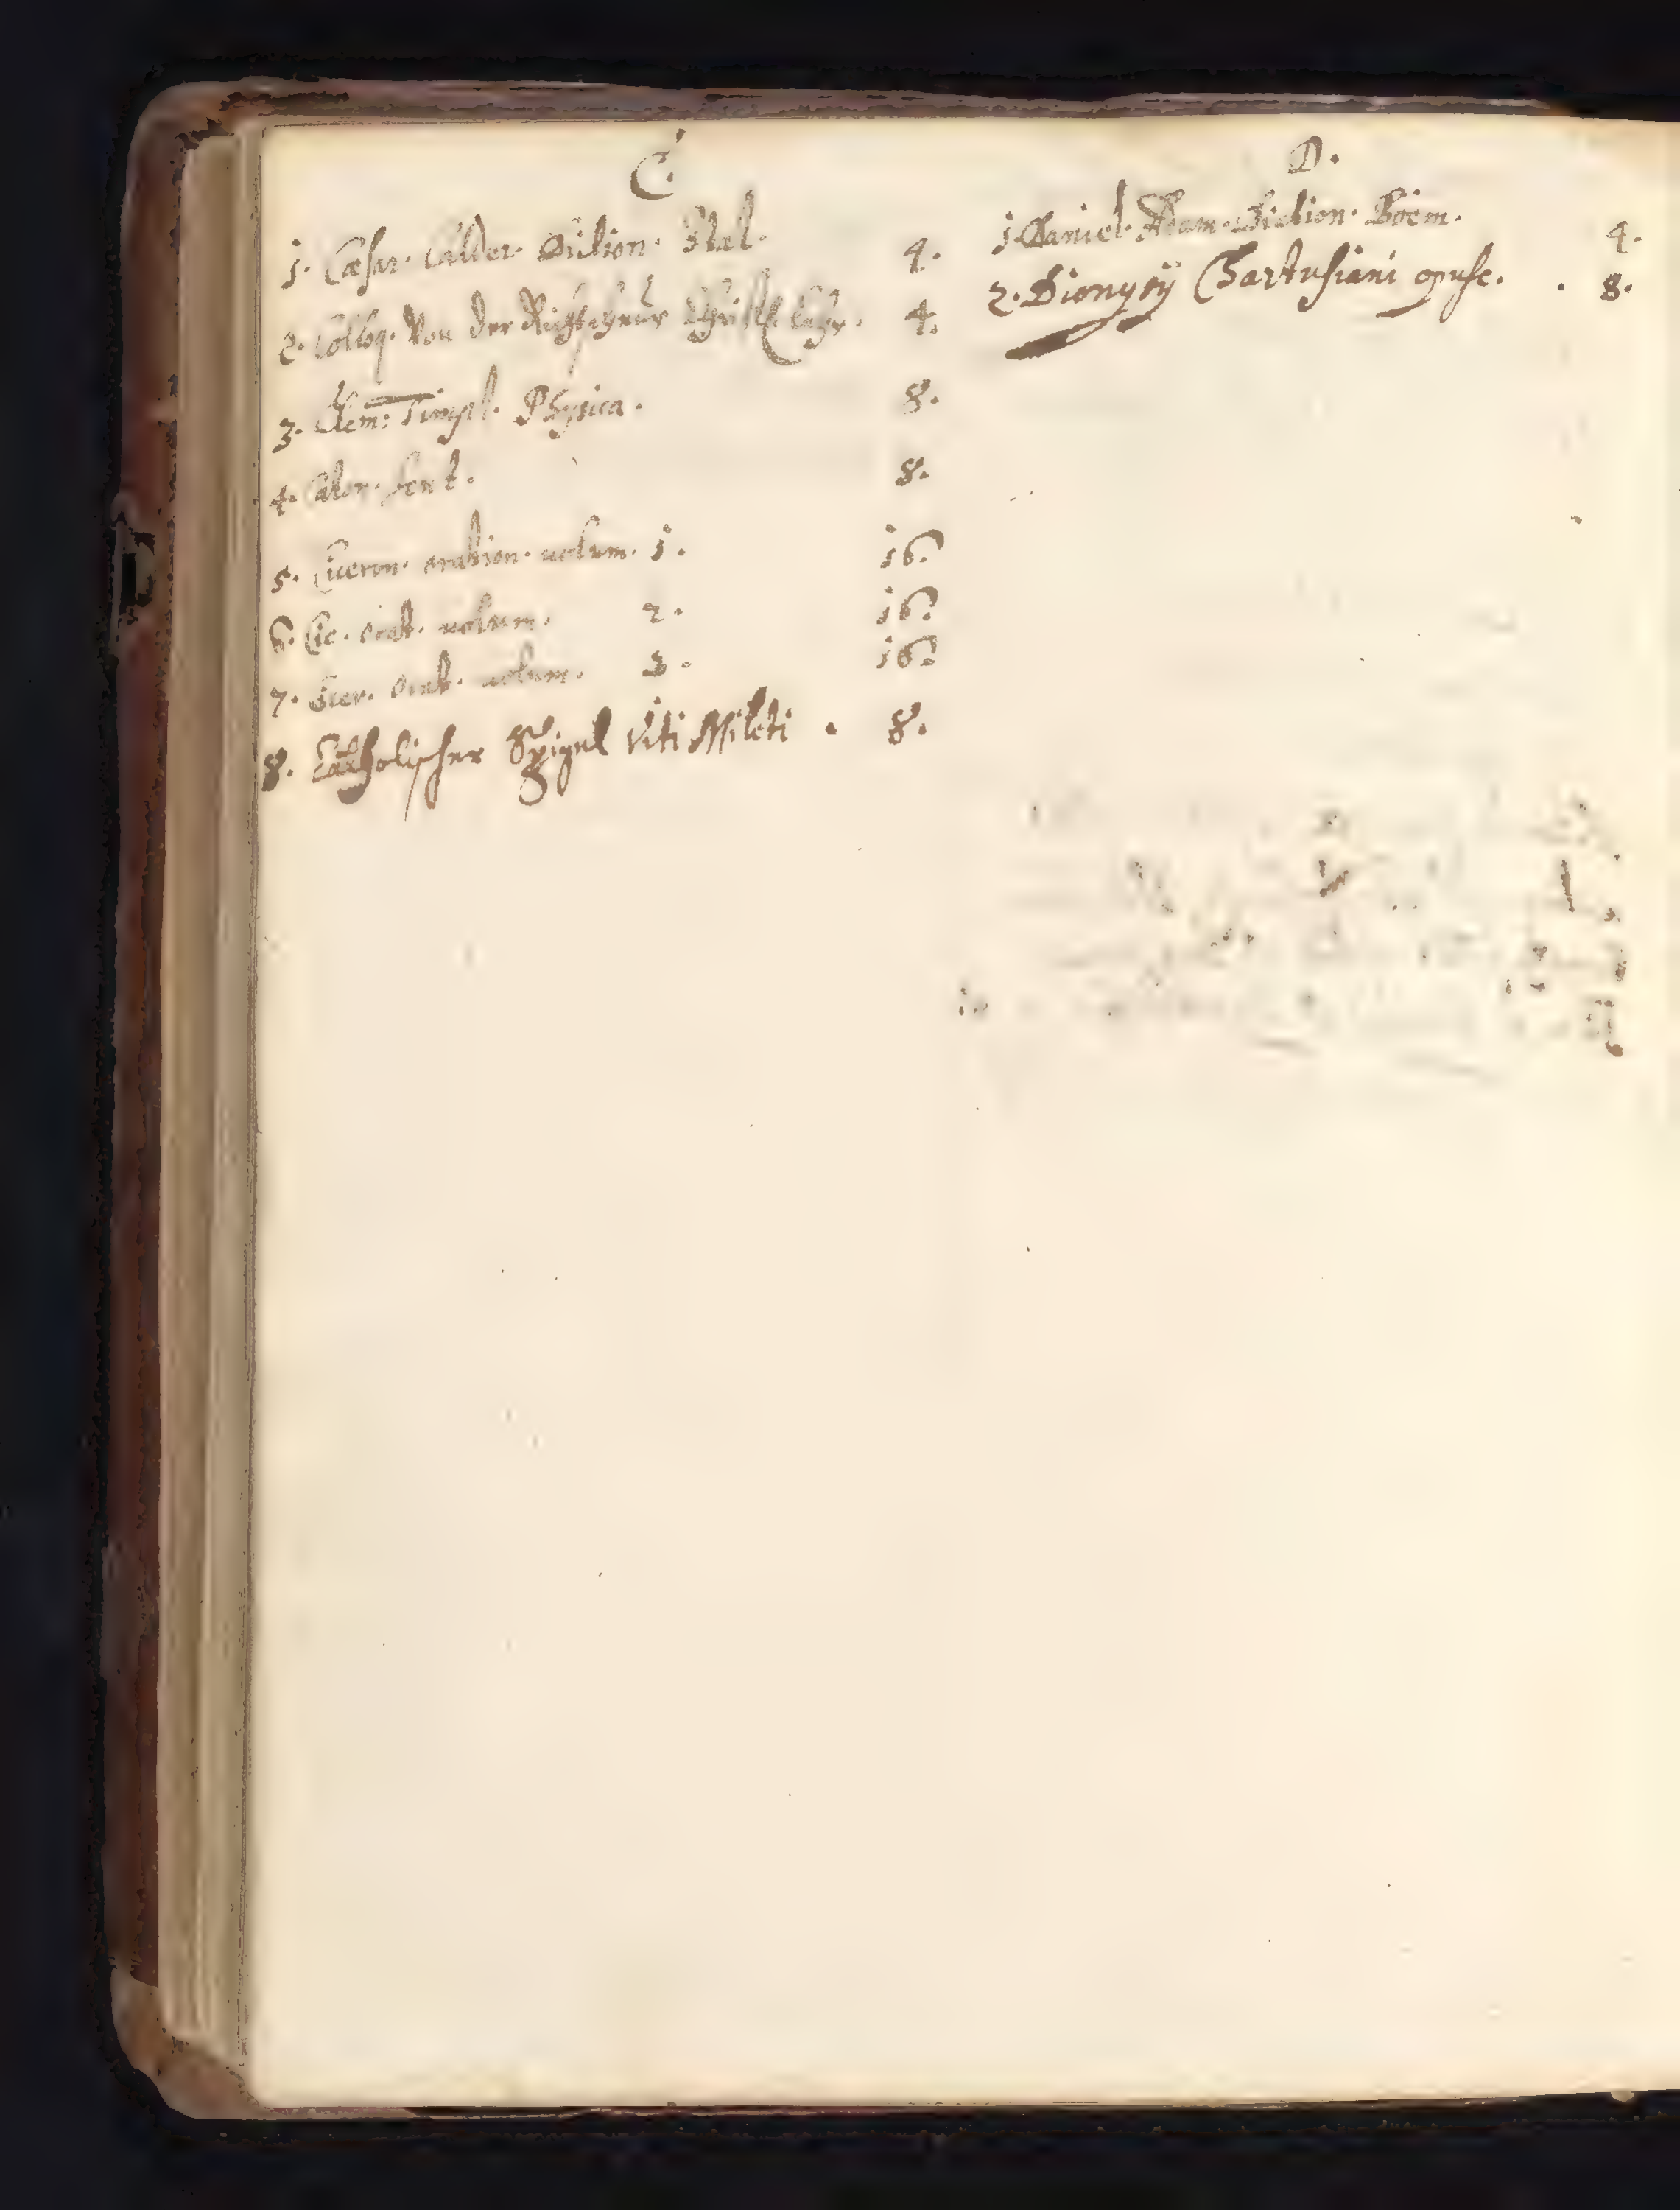 C.
1. Cæsar. Calder. Diction. Ital. 4.
2. Colloq. Von der Richtschnur Christl. Lehr. 4.
3. Clem: Timpl. Physica. 8.
4. Caton. sent. 8.
5. Ciceron. oration. volum. 1. 16.
6. Cic. orat. volum. 2. 16.
7. Cicer. orat. volum. 3. 16.
8. Catholischer Spigel Viti Mileti. 8.
D.
1. Daniel. Adam. Diction. Boem. 4.
2. Dionysÿ Chartusiani opusc. 8.